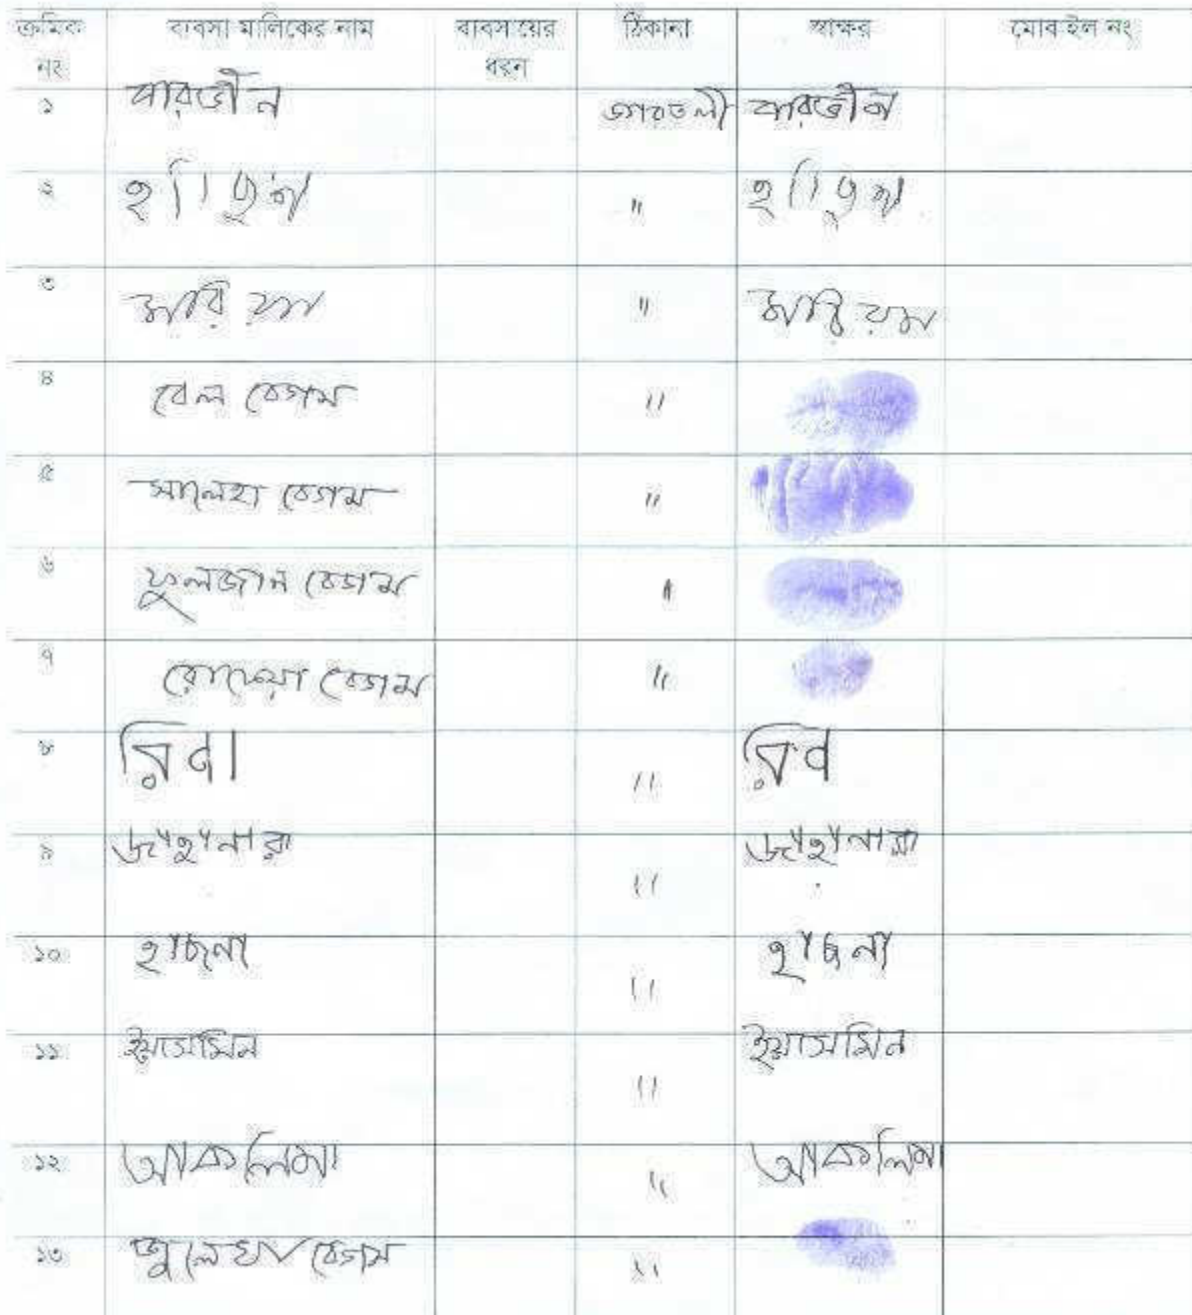 ক্রমিক নং ব্যবসা মালিকের নাম ব্যবসায়ের ধরন ঠিকানা স্বাক্ষর মোবাইল নং
১ পারভীন পারভীন
২ "
৩ মারিয়াম " মারিয়ম
৪ বেল বেগম "
৫ সালেহা বেগম "
৬ ফুলজান বেগম "
৭ বেগম "
৮ রিনা " রিন
৯ জাহানারা " জাহানারা
১০ হাছনা " হাছনা
১১ ইয়াসমিন " ইয়াসমিন
১২ আকলিমা " আকলিমা
১৩ জুলেখা বেগম "